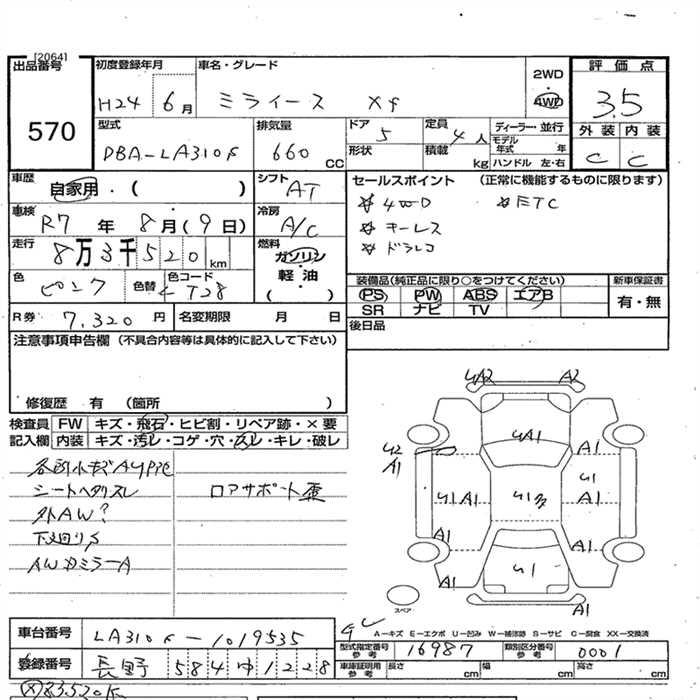 [2064]
出品番号
570
初度登録年月
H24 6月
車名・グレード
ミライース Xf
2WD
4WD
評価点
3.5
外装 内装
C C
型式
DBA-LA310F
排気量
660 CC
ドア
5
形状
定員
4人
積載 kg
ディーラー・並行
モデル年式 年
ハンドル 左・右
車歴
自家用・( )
シフト
AT
車検
R7年8月(9日)
冷房
A/C
走行
8万3千520km
燃料
ガソリン
軽油
( )
色
ピンク
色替
色コード
T28
R券 7,320円
名変期限 月 日
セールスポイント (正常に機能するものに限ります)
☆4WD ☆ETC
☆キーレス
☆ドラレコ
装備品(純正品に限り○をつけてください)
PS PW ABS エアB
SR ナビ TV
新車保証書
有・無
後日品
注意事項申告欄(不具合内容等は具体的に記入して下さい)
修復歴 有 (箇所 )
検査員記入欄
FW キズ・飛石・ヒビ割・リペア跡・×要
内装 キズ・汚レ・コゲ・穴・スレ・キレ・破レ
各所小キズAU
シートヘタリスレ ロアサポート歪
外AW?
下廻りS
AWドミラーA
UA2 A2
UA1
U2
A1
A1
A1
U1 A1
U1
U1
A1
A1
A1
U1
A1
A1
スペア
A―キズ E―エクボ U―凹み W―補修跡 S―サビ C―腐食 XX―交換済
車台番号
LA310F-1019535
登録番号
長野 584 ゆ 1228
型式指定番号参考
16987
類別区分番号参考
0001
車庫証明用参考
長さ cm 幅 cm 高さ cm
83,520K